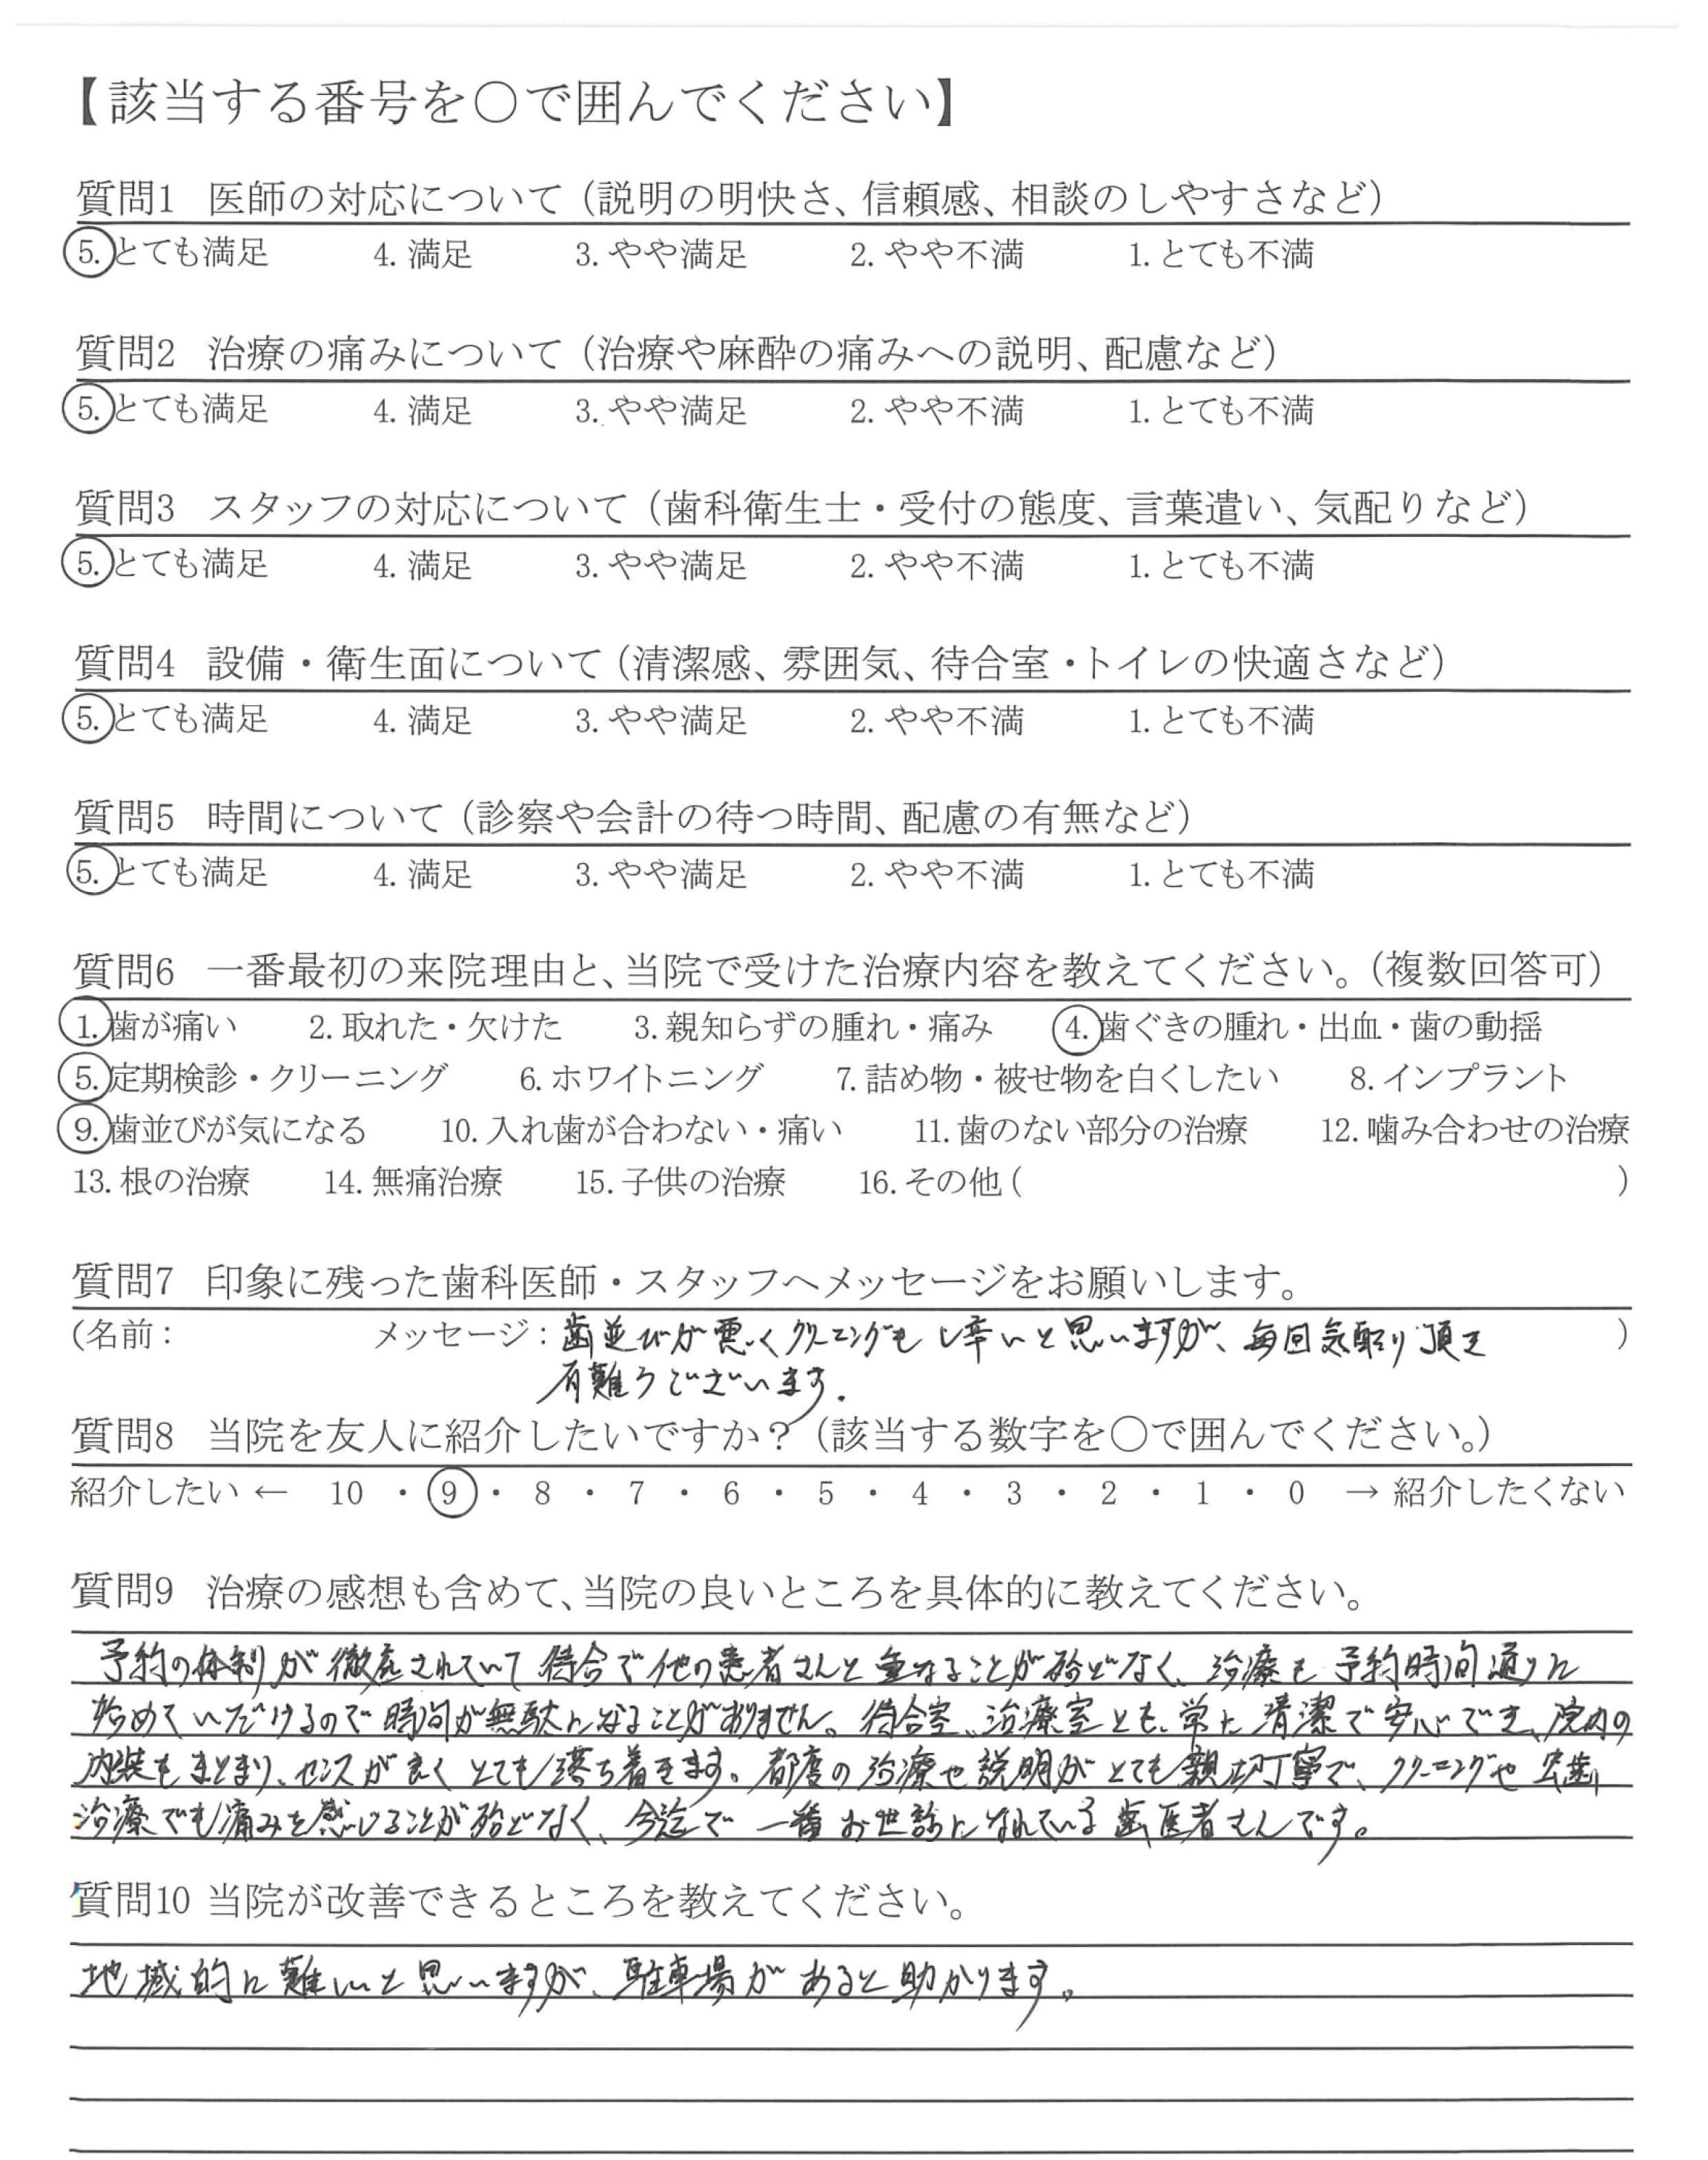 【該当する番号を○で囲んでください】
質問1 医師の対応について（説明の明快さ、信頼感、相談のしやすさなど）
5. とても満足 4. 満足 3. やや満足 2. やや不満 1. とても不満
質問2 治療の痛みについて（治療や麻酔の痛みへの説明、配慮など）
5. とても満足 4. 満足 3. やや満足 2. やや不満 1. とても不満
質問3 スタッフの対応について（歯科衛生士・受付の態度、言葉遣い、気配りなど）
5. とても満足 4. 満足 3. やや満足 2. やや不満 1. とても不満
質問4 設備・衛生面について（清潔感、雰囲気、待合室・トイレの快適さなど）
5. とても満足 4. 満足 3. やや満足 2. やや不満 1. とても不満
質問5 時間について（診察や会計の待つ時間、配慮の有無など）
5. とても満足 4. 満足 3. やや満足 2. やや不満 1. とても不満
質問6 一番最初の来院理由と、当院で受けた治療内容を教えてください。（複数回答可）
1. 歯が痛い 2. 取れた・欠けた 3. 親知らずの腫れ・痛み 4. 歯ぐきの腫れ・出血・歯の動揺
5. 定期検診・クリーニング 6. ホワイトニング 7. 詰め物・被せ物を白くしたい 8. インプラント
9. 歯並びが気になる 10. 入れ歯が合わない・痛い 11. 歯のない部分の治療 12. 噛み合わせの治療
13. 根の治療 14. 無痛治療 15. 子供の治療 16. その他（ ）
質問7 印象に残った歯科医師・スタッフへメッセージをお願いします。
（名前： メッセージ：歯並びが悪くクリーニングもし辛いと思いますが、毎回気配り頂き ）
有難うございます.
質問8 当院を友人に紹介したいですか？（該当する数字を○で囲んでください。）
紹介したい ← 10 ・ 9 ・ 8 ・ 7 ・ 6 ・ 5 ・ 4 ・ 3 ・ 2 ・ 1 ・ 0 → 紹介したくない
質問9 治療の感想も含めて、当院の良いところを具体的に教えてください。
予約の体制が徹底されていて待合で他の患者さんと重なることが殆どなく、治療も予約時間通りに
始めていただけるので時間が無駄になることがありません。待合室、治療室とも、常に清潔で安心でき、院内の
内装もまとまり、センスが良くとても落ち着きます。都度の治療や説明がとても親切丁寧で、クリーニングや虫歯
治療でも痛みを感じることが殆どなく、今迄で一番お世話になれている歯医者さんです。
質問10 当院が改善できるところを教えてください。
地域的に難しいと思いますが、駐車場があると助かります。